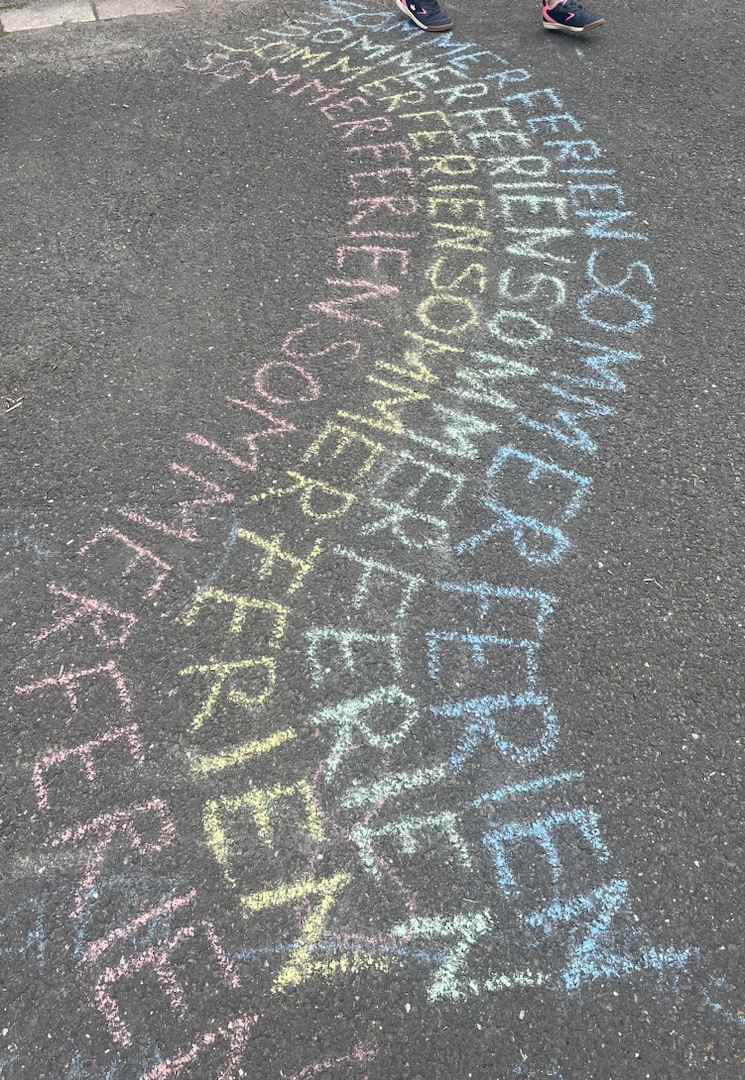 SOMMERFERIENSOMMERFERIEN
SOMMERFERIENSOMMERFERIEN
SOMMERFERIENSOMMERFERIEN
SOMMERFERIENSOMMERFERIEN